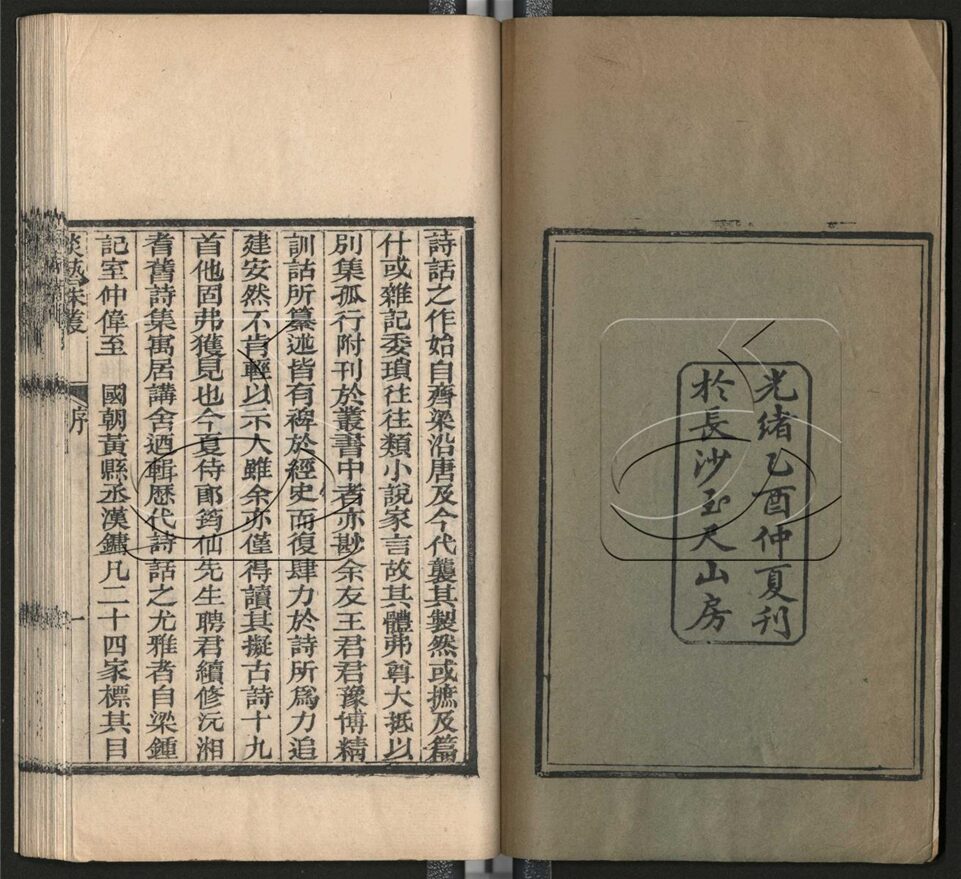 光緒乙酉仲夏刊
於長沙玉尺山房
詩話之作始自齊梁沿唐及今代襲其製然或摭及篇
什或雜記委瑣往往類小說家言故其體弗尊大抵以
別集孤行附刊於叢書中者亦尠余友王君君豫博精
訓詁所纂述皆有裨於經史而復肆力於詩所爲力追
建安然不肯輕以示人雖余亦僅得讀其擬古詩十九
首他固弗獲見也今夏侍郎筠仙先生聘君續修沅湘
耆舊詩集寓居講舍迺輯歷代詩話之尤雅者自梁鍾
記室仲偉至 國朝黃縣丞漢鏞凡二十四家標其目
談藝珠叢
序
一